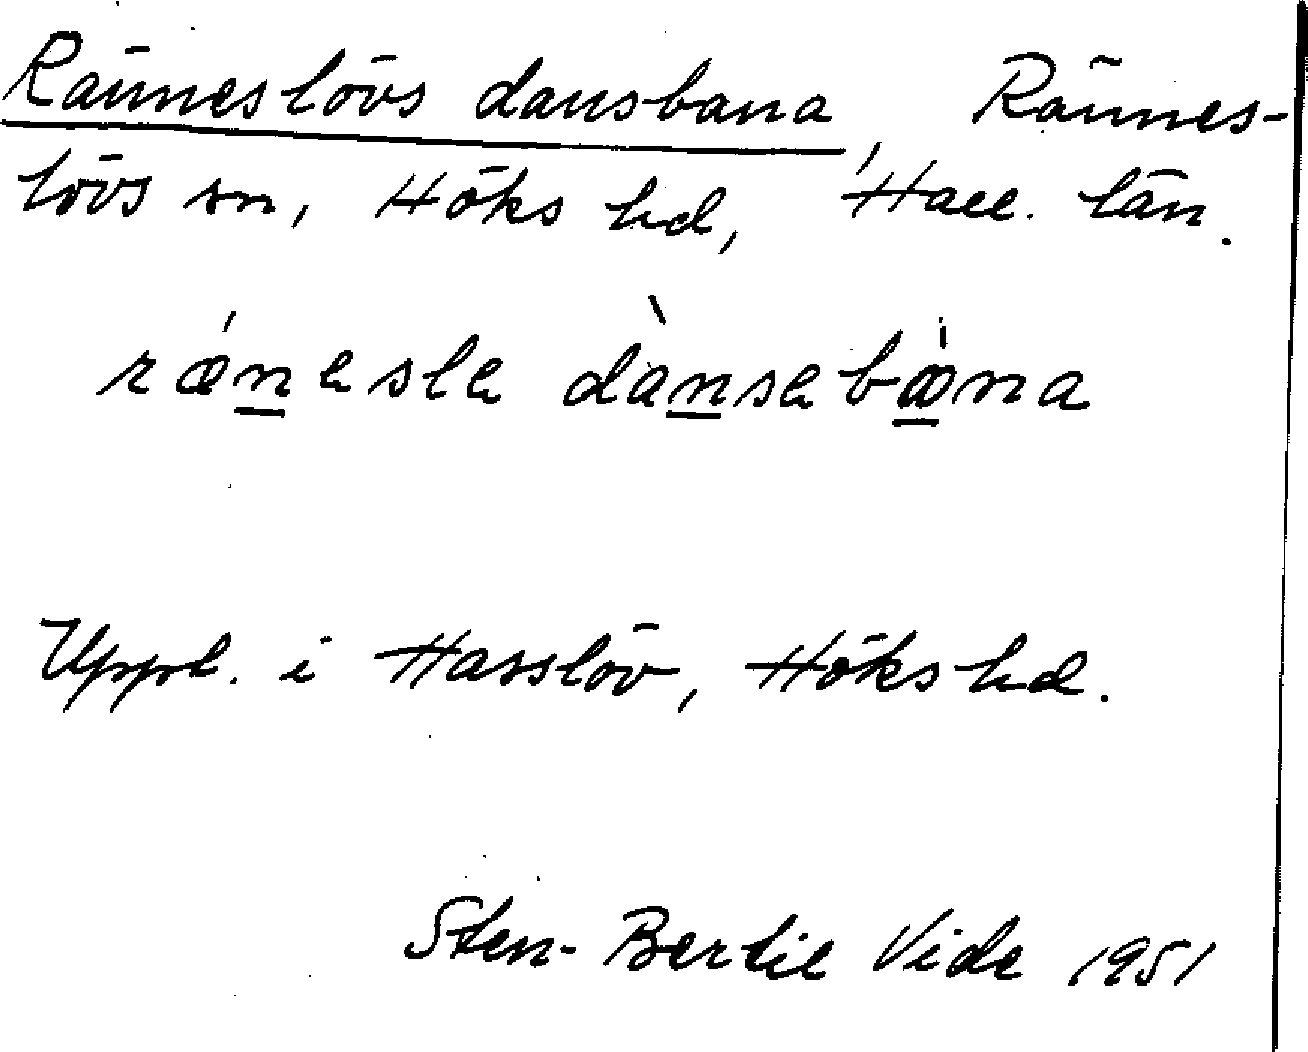 Ränneslövs dansbana, Rännes-
lövs sn, Höks hd, Hall. län.
ræ´nesle dànsebana
Uppt. i Hasslöv, Höks hd.
Sten-Bertil Vide 1951